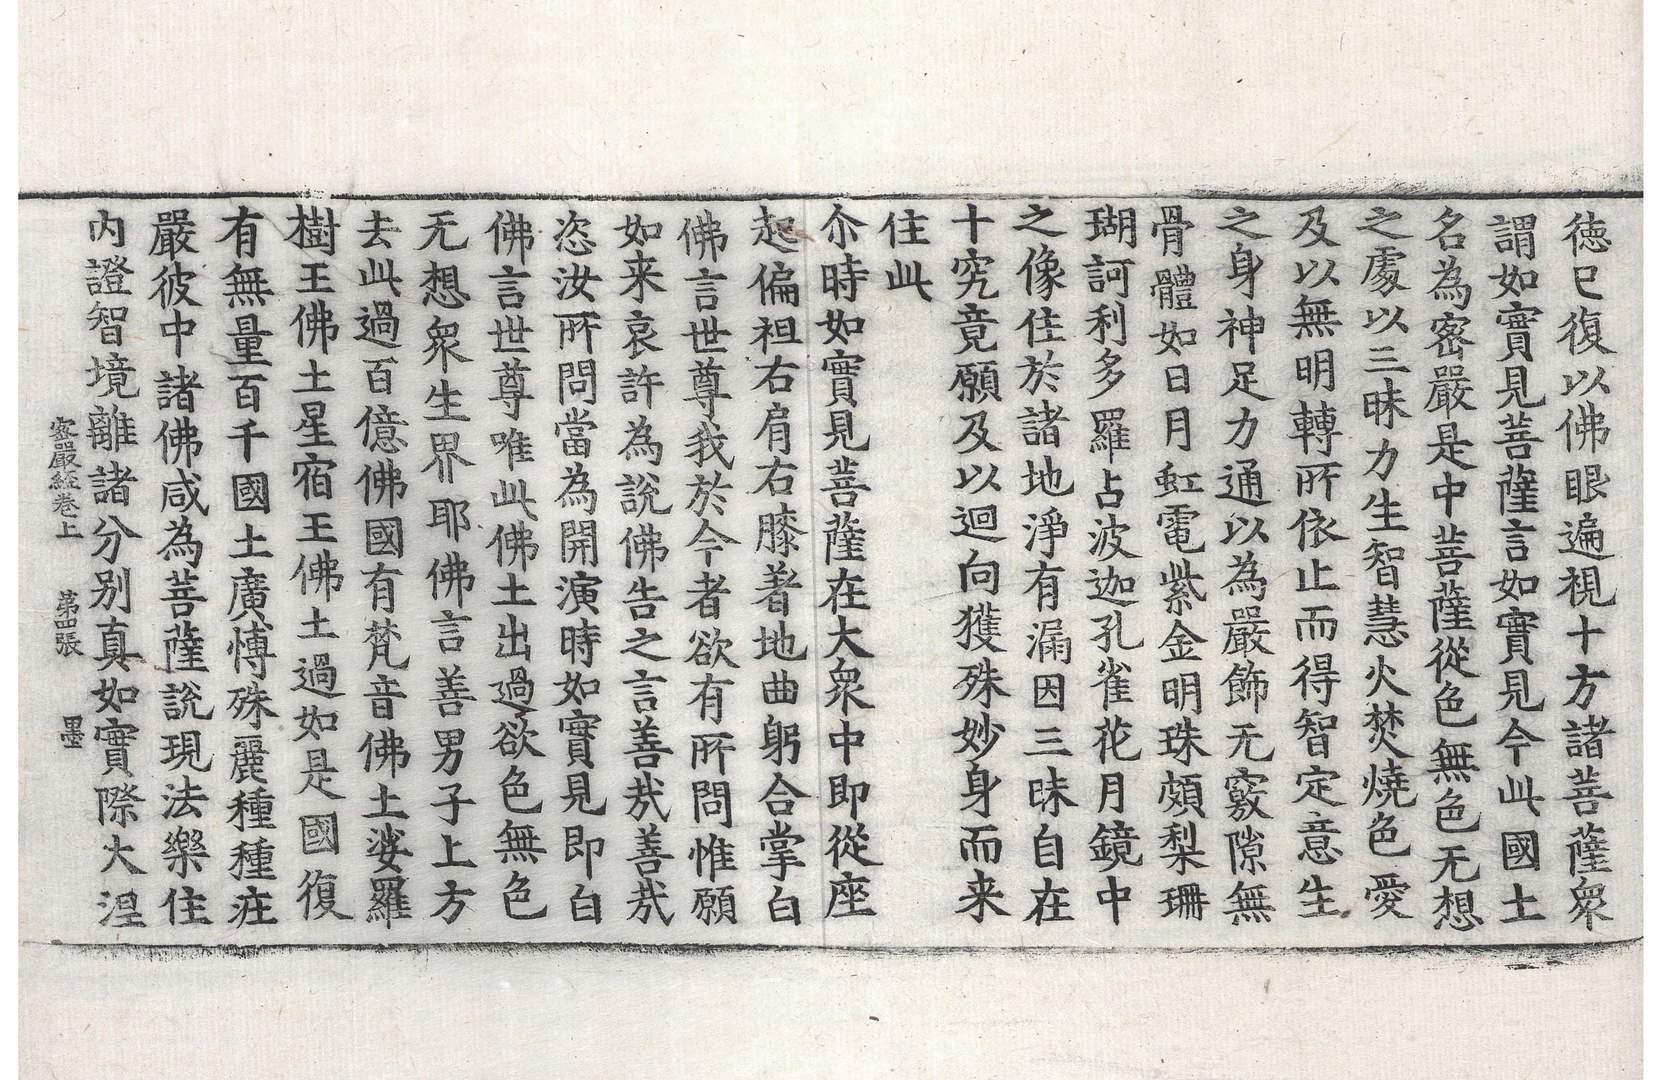 徳已復以佛眼遍視十方諸菩薩衆
謂如實見菩薩言如實見今此國土
名為密嚴是中菩薩從色無色无想
之處以三昧力生智慧火焚燒色愛
及以無明轉所依止而得智定意生
之身神足力通以為嚴飾无竅隙無
骨體如日月虹電紫金明珠頗梨珊
瑚訶利多羅占波迦孔雀花月鏡中
之像住於諸地淨有漏因三昧自在
十究竟願及以迴向獲殊妙身而来
住此
尒時如實見菩薩在大衆中即從座
起偏袒右肩右膝著地曲躬合掌白
佛言世尊我於今者欲有所問惟願
如来哀許為說佛告之言善哉善哉
恣汝所問當為開演時如實見即白
佛言世尊唯此佛土出過欲色無色
无想衆生界耶佛言善男子上方
去此過百億佛國有梵音佛土娑羅
樹王佛土星宿王佛土過如是國復
有無量百千國土廣愽殊麗種種莊
嚴彼中諸佛咸為菩薩說現法樂住
内證智境離諸分别真如實際大涅
密嚴経卷上 第四張 墨